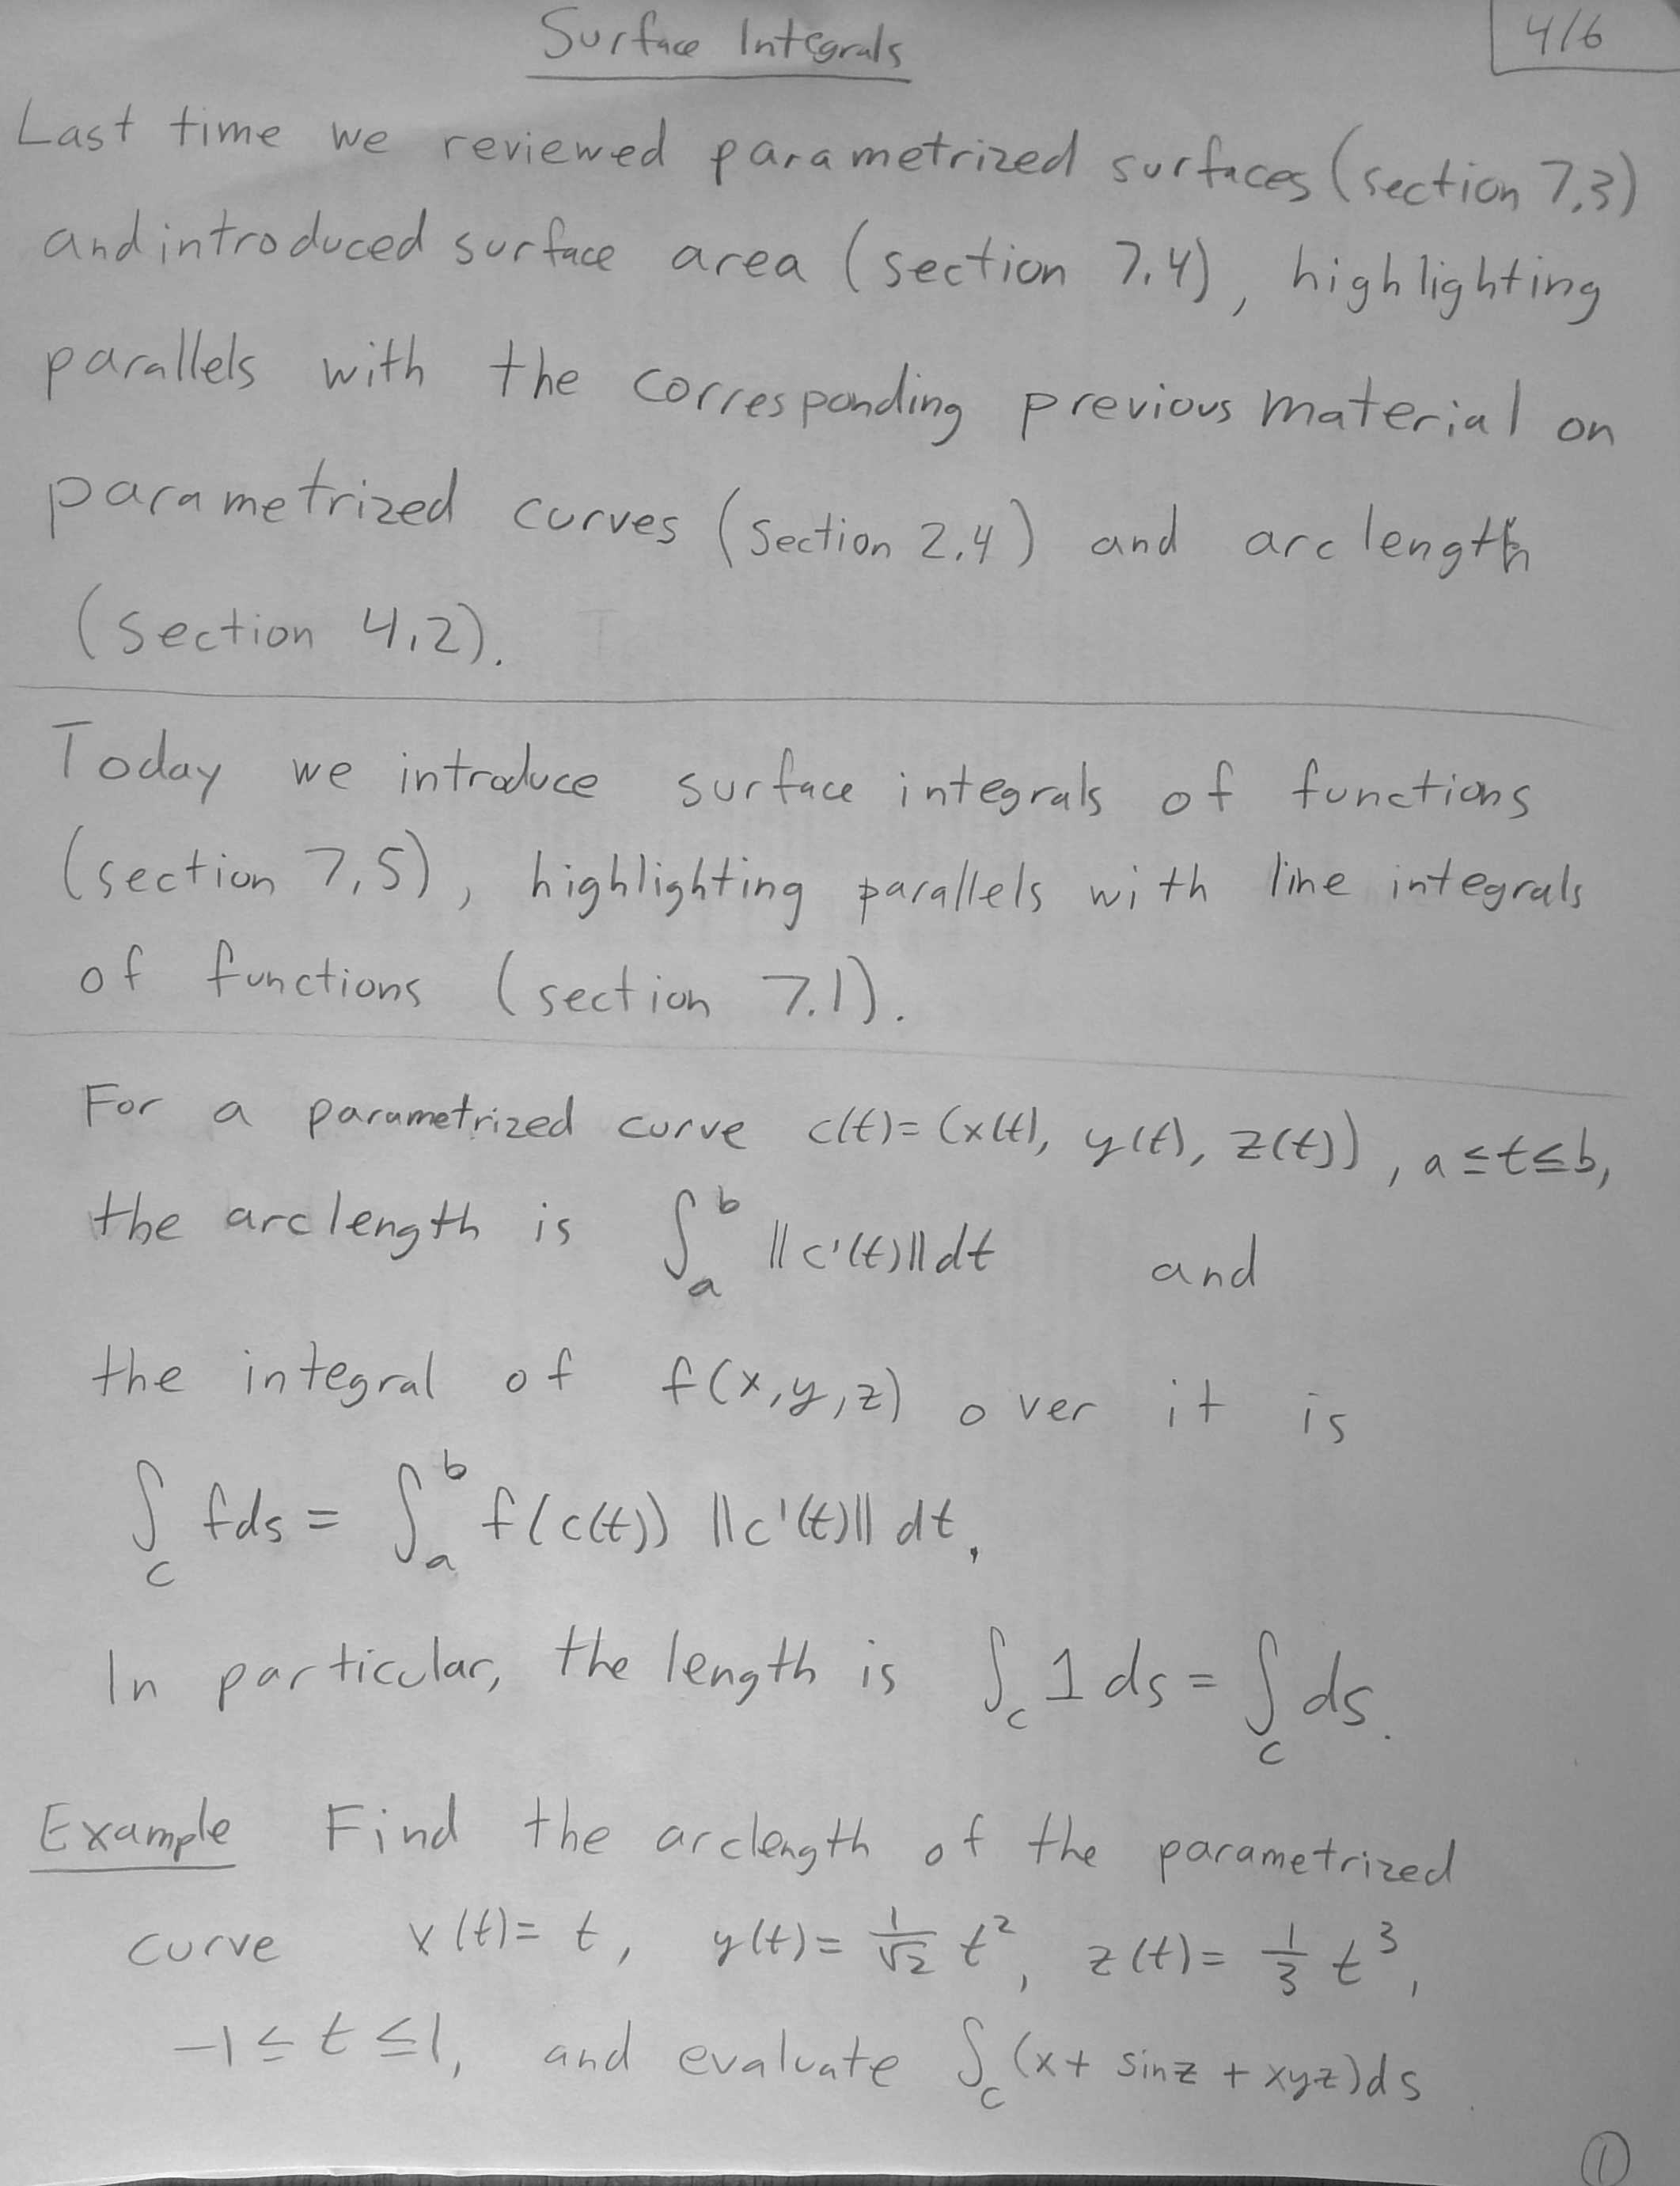 Surface Integrals
4/6
Last time we reviewed parametrized surfaces (section 7.3)
and introduced surface area (section 7.4), highlighting
parallels with the corresponding previous material on
parametrized curves (section 2.4) and arc length
(section 4.2).
Today we introduce surface integrals of functions
(section 7.5), highlighting parallels with line integrals
of functions (section 7.1).
For a parametrized curve c(t) = (x(t), y(t), z(t)), a ≤ t ≤ b,
the arc length is ∫_a^b ||c'(t)|| dt and
the integral of f(x,y,z) over it is
∫_c f ds = ∫_a^b f(c(t)) ||c'(t)|| dt.
In particular, the length is ∫_c 1 ds = ∫_c ds.
Example Find the arclength of the parametrized
curve x(t) = t, y(t) = 1/√2 t², z(t) = 1/3 t³,
-1 ≤ t ≤ 1, and evaluate ∫_c (x + sin z + xyz) ds
①